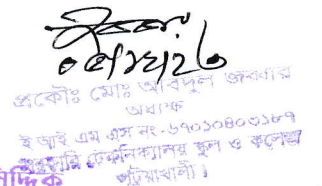 ০৫/১২/২৩
প্রকৌঃ মোঃ আবদুল জব্বার
অধ্যক্ষ
ই আই এম এস নং-৬৭০১০৪০৩১৮৭
সরকারি টেকনিক্যাল স্কুল ও কলেজ
পটুয়াখালী।
দ্দিক